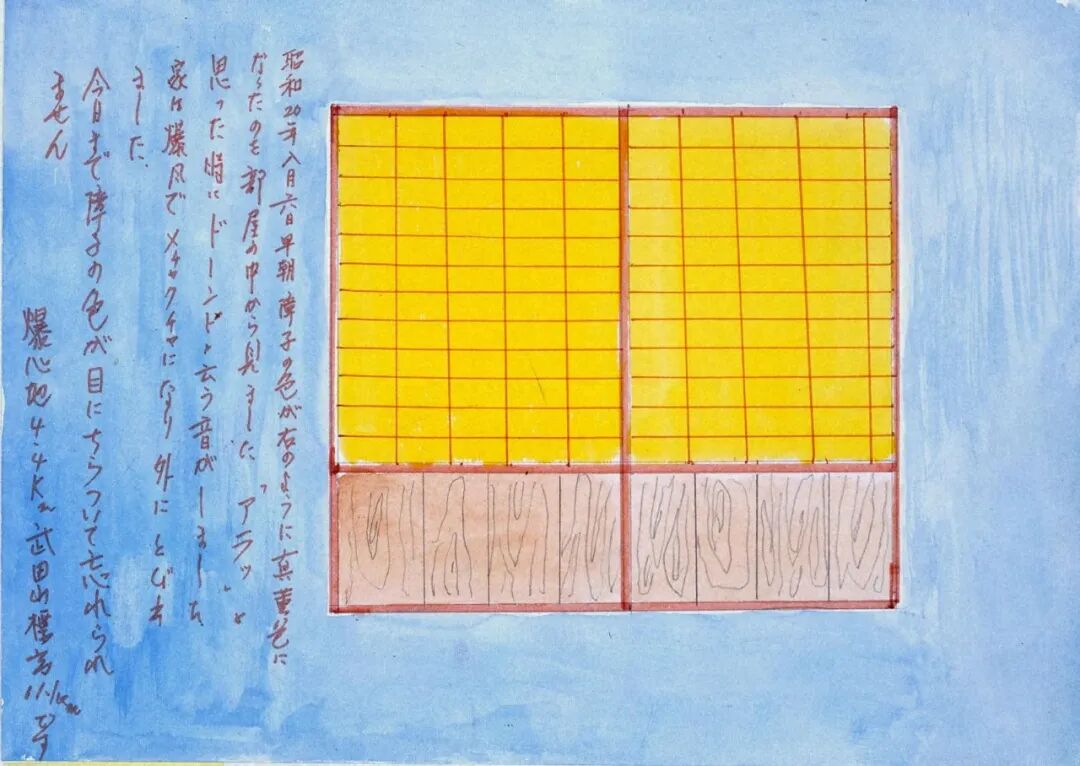 昭和20年八月六日早朝障子の色が右のように真黄色に
なったのを部屋の中から見ました「アラッ」と
思った時にドーンドと云う音がしました
家は爆風でメチャクチャになり外にとび出
ました、
今日まで障子の色が目にちらついて忘れられ
ません
爆心地4.4K 武田山標高 です